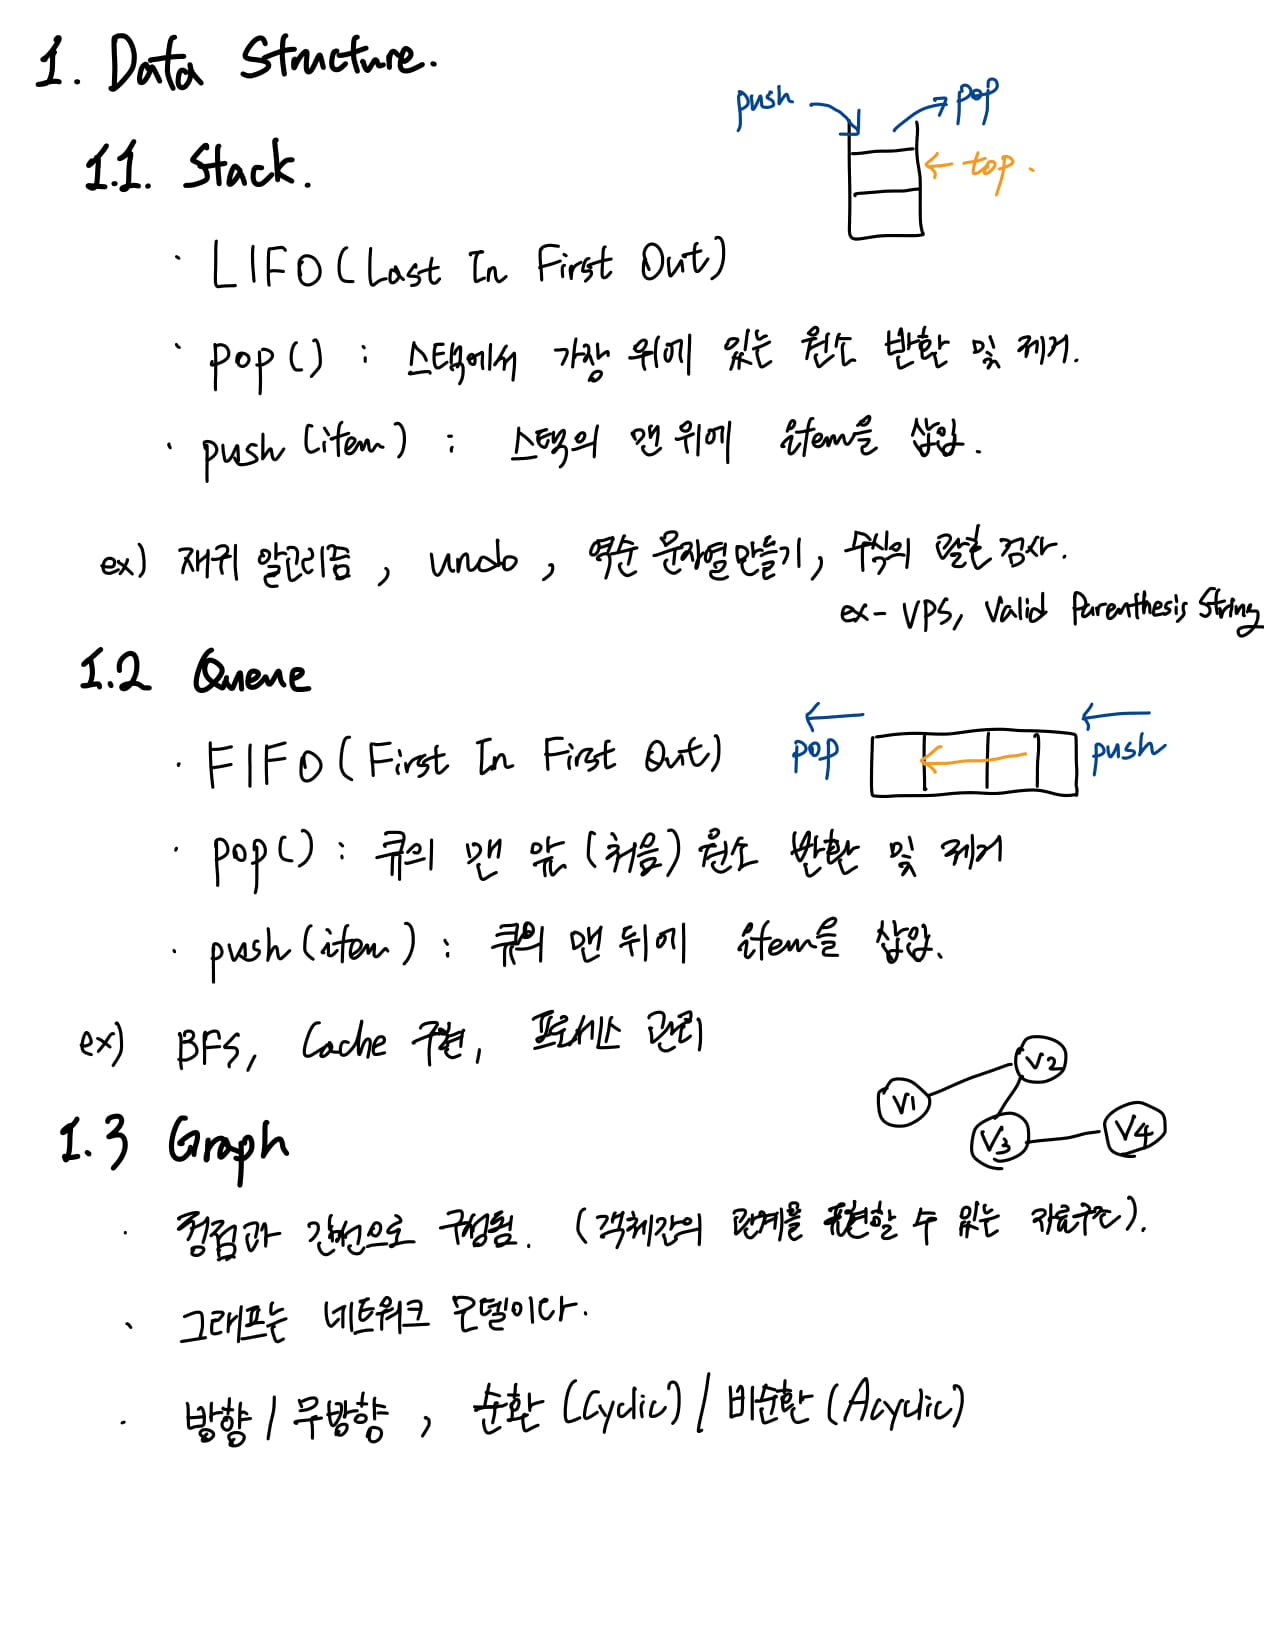 1. Data Structure.
push pop
1.1. Stack.
← top.
· LIFO (Last In First Out)
· pop() : 스택에서 가장 위에 있는 원소 반환 및 제거.
· push(item) : 스택의 맨 위에 item을 삽입.
ex) 재귀 알고리즘, undo, 역순 문자열 만들기, 수식의 괄호 검사.
ex- VPS, Valid Parenthesis String
1.2 Queue
· FIFO (First In First Out)
pop push
· pop() : 큐의 맨 앞 (처음) 원소 반환 및 제거
· push(item) : 큐의 맨 뒤에 item을 삽입.
ex) BFS, Cache 구현, 프로세스 관리
V1 V2 V3 V4
1.3 Graph
· 정점과 간선으로 구성됨. (객체간의 관계를 표현할 수 있는 자료구조).
· 그래프는 네트워크 모델이다.
· 방향 / 무방향, 순환 (Cyclic) / 비순환 (Acyclic)